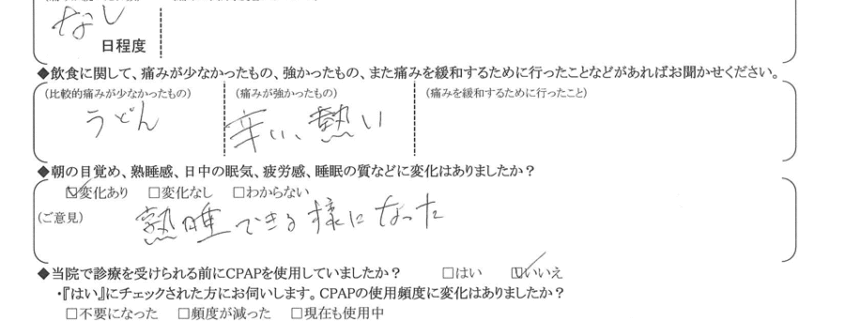 なし
日程度
◆飲食に関して、痛みが少なかったもの、強かったもの、また痛みを緩和するために行ったことなどがあればお聞かせください。
(比較的痛みが少なかったもの) (痛みが強かったもの) (痛みを緩和するために行ったこと)
うどん 辛い、熱い
◆朝の目覚め、熟睡感、日中の眠気、疲労感、睡眠の質などに変化はありましたか？
☑変化あり □変化なし □わからない
(ご意見) 熟睡できる様になった
◆当院で診療を受けられる前にCPAPを使用していましたか？ □はい ☑いいえ
・『はい』にチェックされた方にお伺いします。CPAPの使用頻度に変化はありましたか？
□不要になった □頻度が減った □現在も使用中